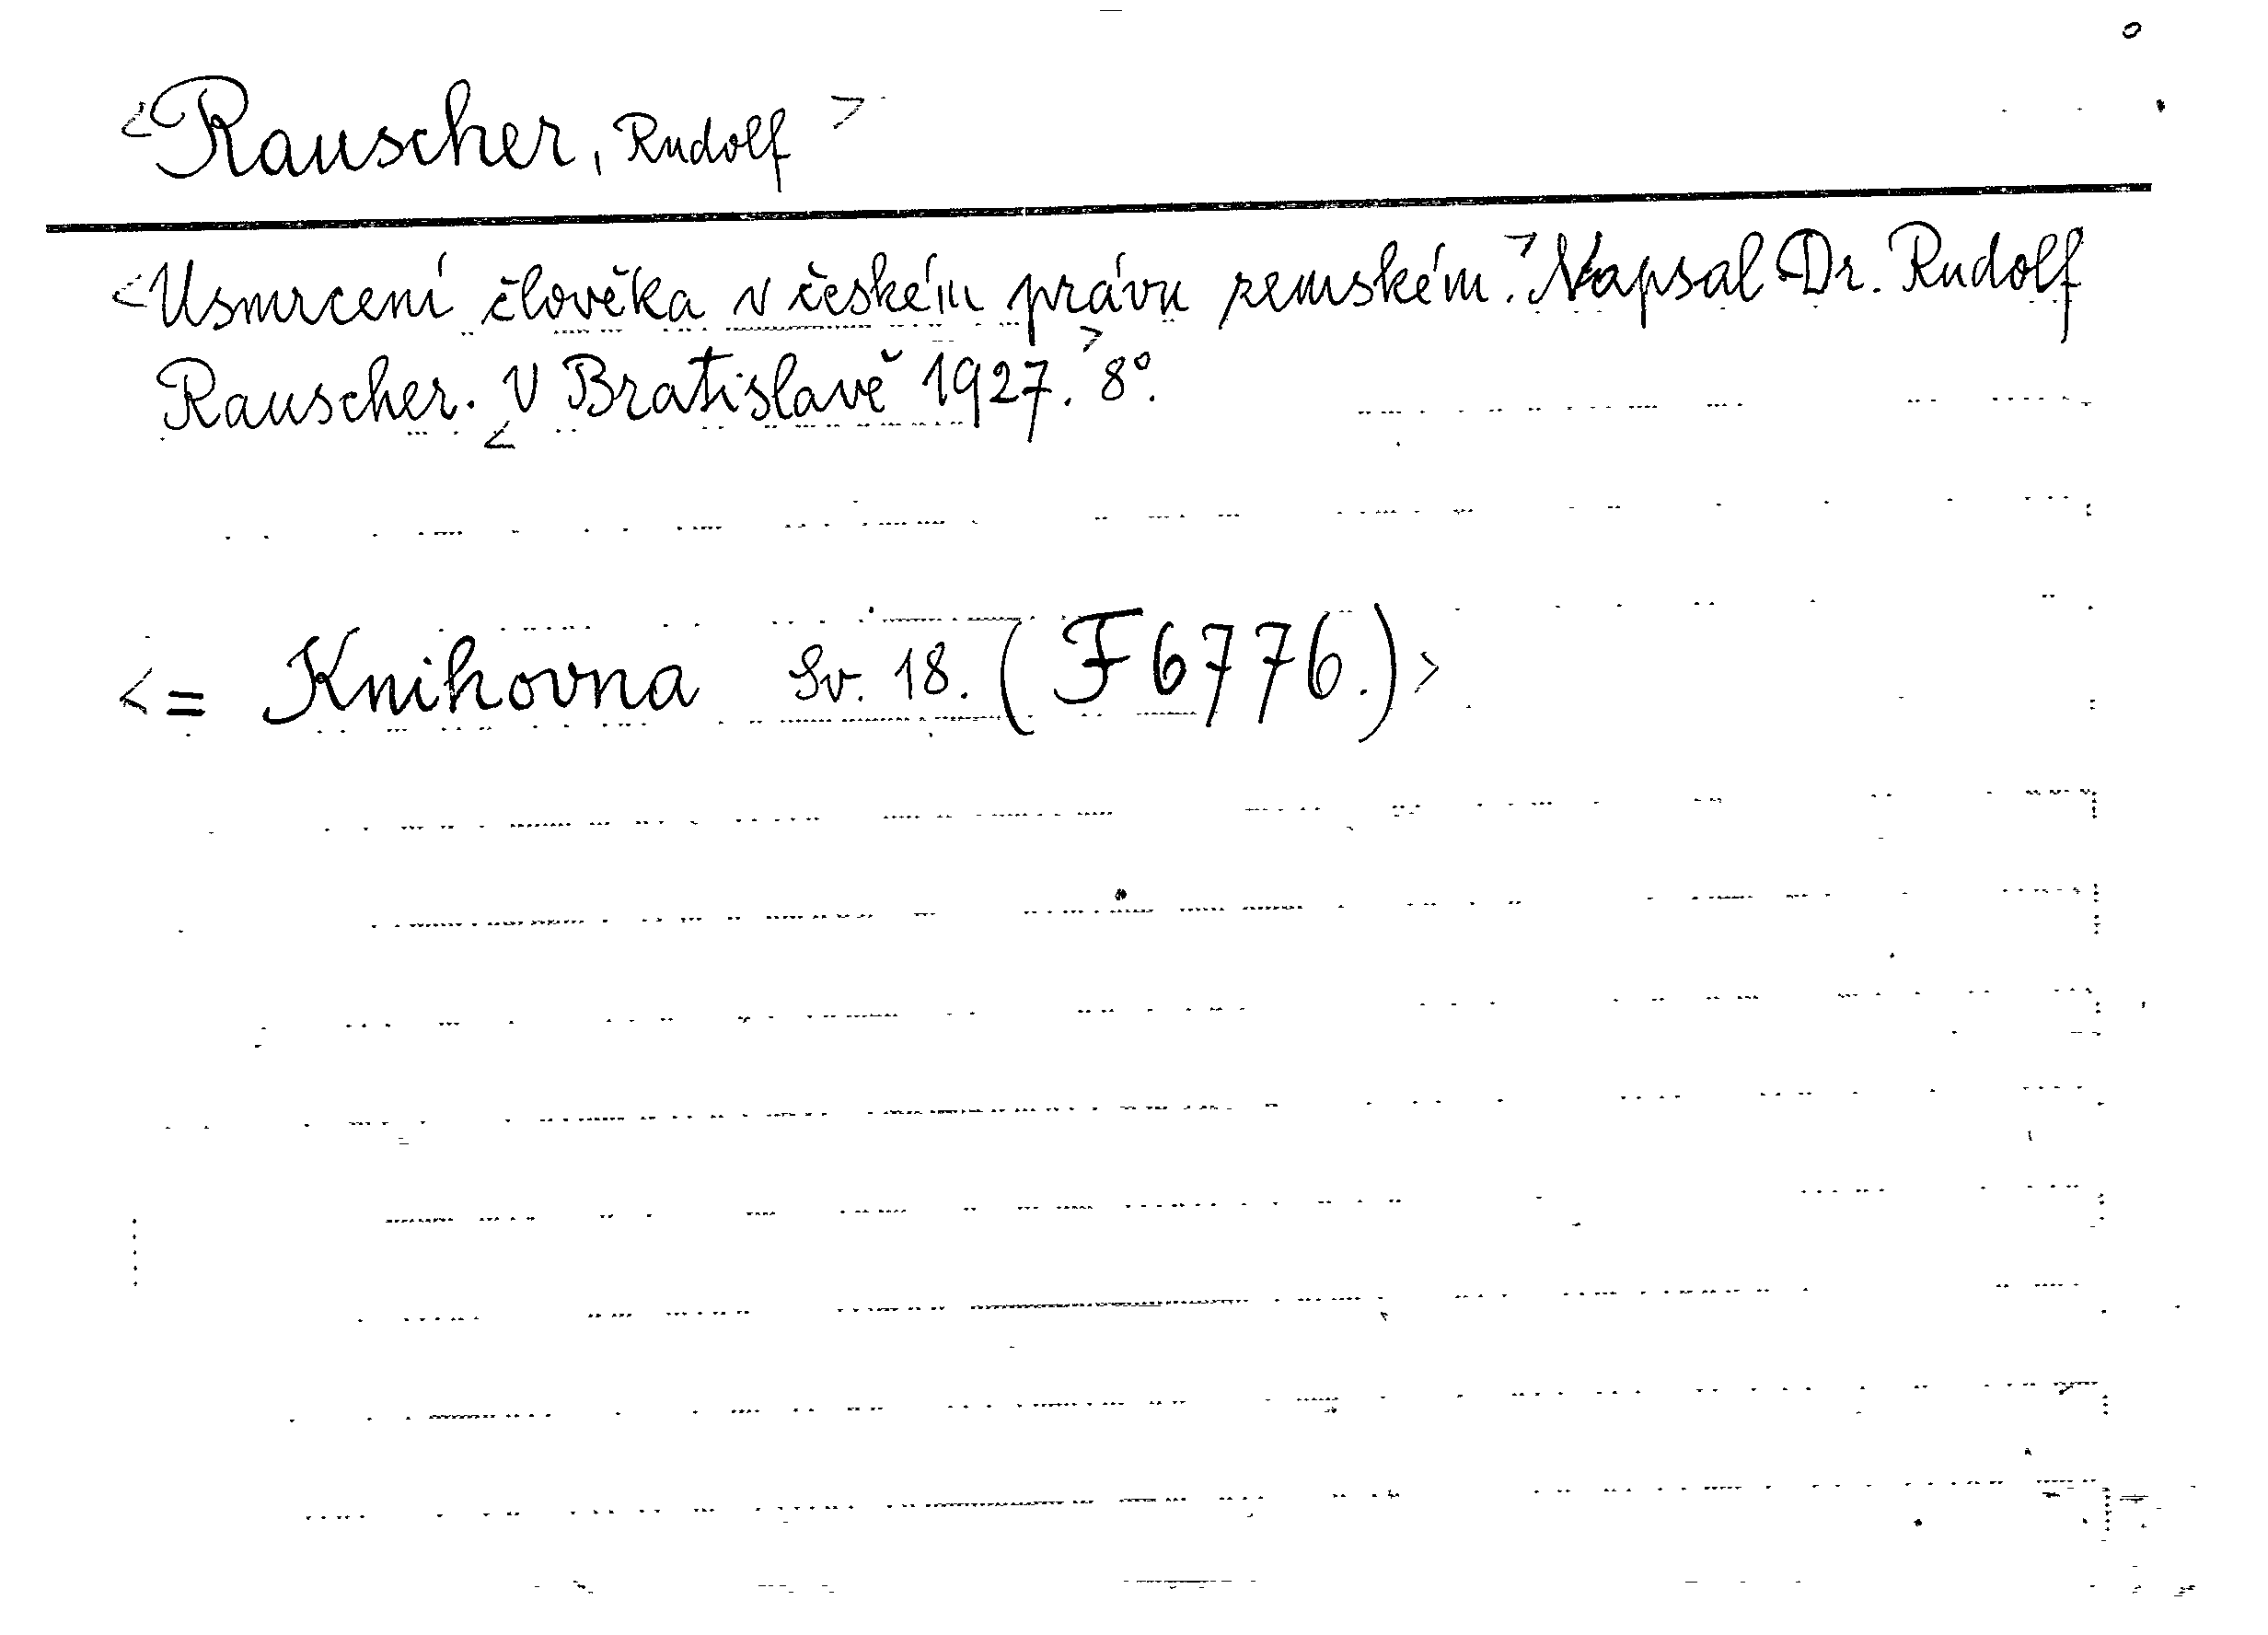 <Rauscher, Rudolf>
<Usmrcení člověka v českém právu zemském.> Napsal Dr. Rudolf
Rauscher. <V Bratislavě 1927.> 8°.
<= Knihovna Sv. 18. (F 6776.)>